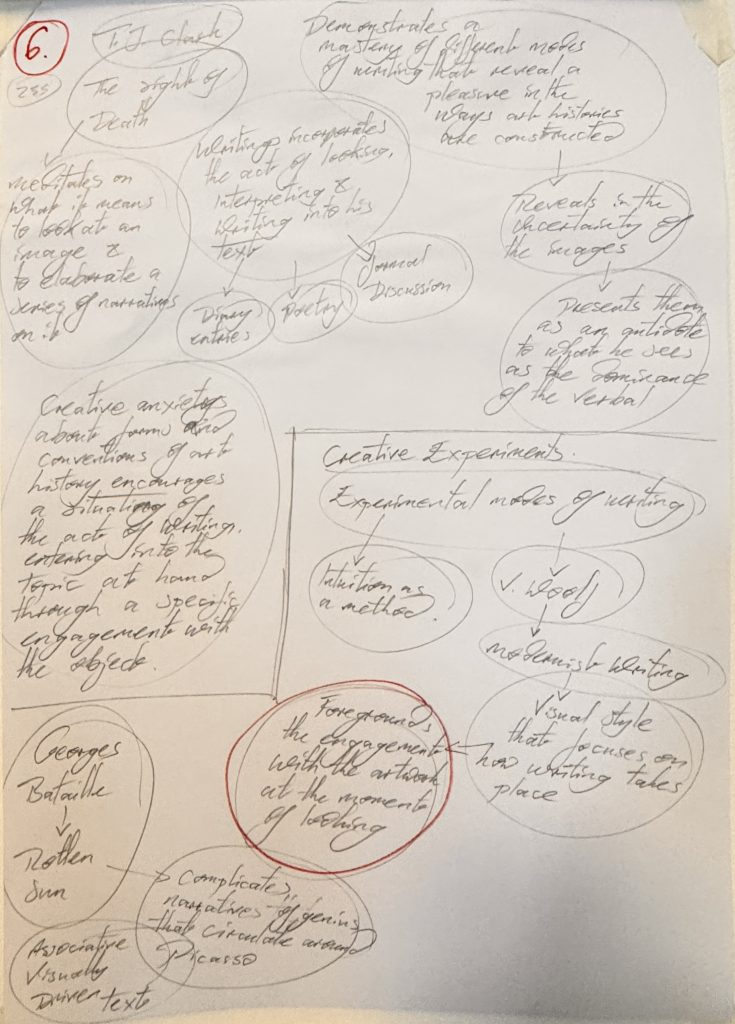 6.
285
T. J. Clark
The sight of
Death
Meditates on
what it means
to look at an
image &
to elaborate a
series of narratings
on it
Writings incorporates
the act of looking,
Interpreting &
writing into his
text
Diary
entries
Poetry
Formal
Discussion
Demonstrates a
mastery of different modes
of writing that reveal a
pleasure in the
ways art histories
are constructed
Reveals in the
uncertainty of
the images
Presents them
as an antidote
to what he sees
as the dominance
of the verbal
Creative anxiety
about forms and
conventions of art
history encourages
a situating of
the act of writing,
entering into the
topic at hand
through a specific
engagement with
the object.
Creative Experiments.
Experimental modes of writing
Intuition as
a method.
V. Woolf
Modernist writing
Visual style
that focuses on
how writing takes
place
Foregrounds
the engagement
with the artwork
at the moment
of looking
Georges
Bataille
Rotten
Sun
Complicates
narratives of "genius"
that circulate around
Picasso
Associative
Visually
Driven text